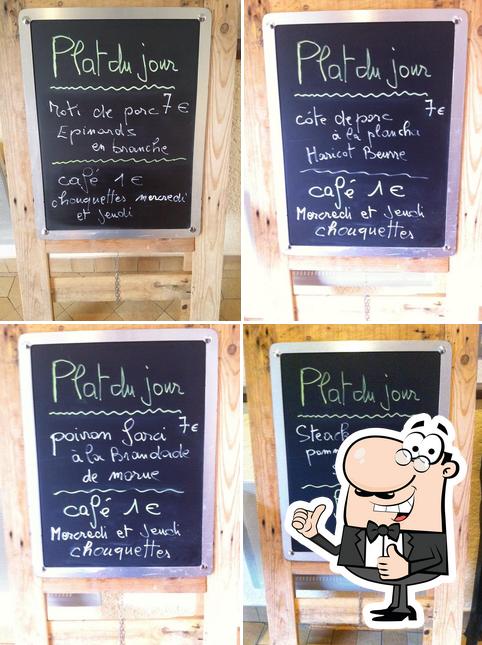 Plat du jour
Roti de porc 7€
Epinards
en branche
café 1€
chouquettes mercredi
et jeudi
Plat du jour
7€
côte de porc
à la plancha
Haricot Beurre
café 1€
Mercredi et Jeudi
chouquettes
Plat du jour
poivron farci 7€
à la Brandade
de morue
café 1€
Mercredi et Jeudi
chouquettes
Plat du jour
Steack